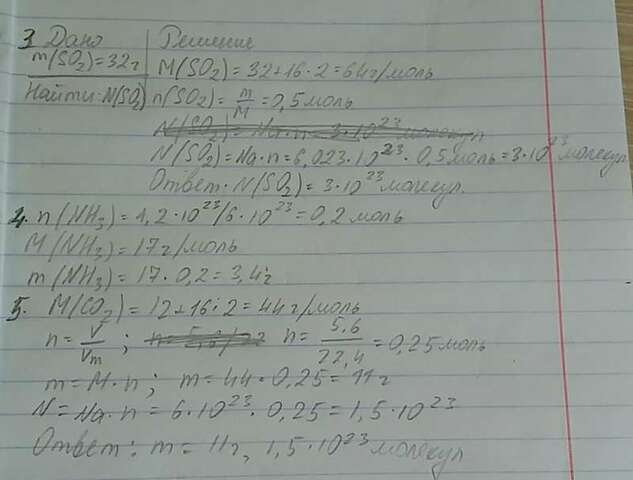 3 Дано Решение
m(SO₂)=32г M(SO₂)=32+16·2=64г/моль
Найти: N(SO₂) n(SO₂)=m/M=0,5моль
N(SO₂)=Na·n=3·10²³молекул
N(SO₂)=Na·n=6,023·10²³·0,5моль=3·10²³молекул
Ответ: N(SO₂)=3·10²³молекул.
4. n(NH₃)=1,2·10²³/6·10²³=0,2моль
M(NH₃)=17г/моль
m(NH₃)=17·0,2=3,4г
5. M(CO₂)=12+16·2=44г/моль
n=V/Vm; n=5,6/22 n=5,6/22,4=0,25моль
m=M·n; m=44·0,25=11г
N=Na·n=6·10²³·0,25=1,5·10²³
Ответ: m=11г, 1,5·10²³молекул